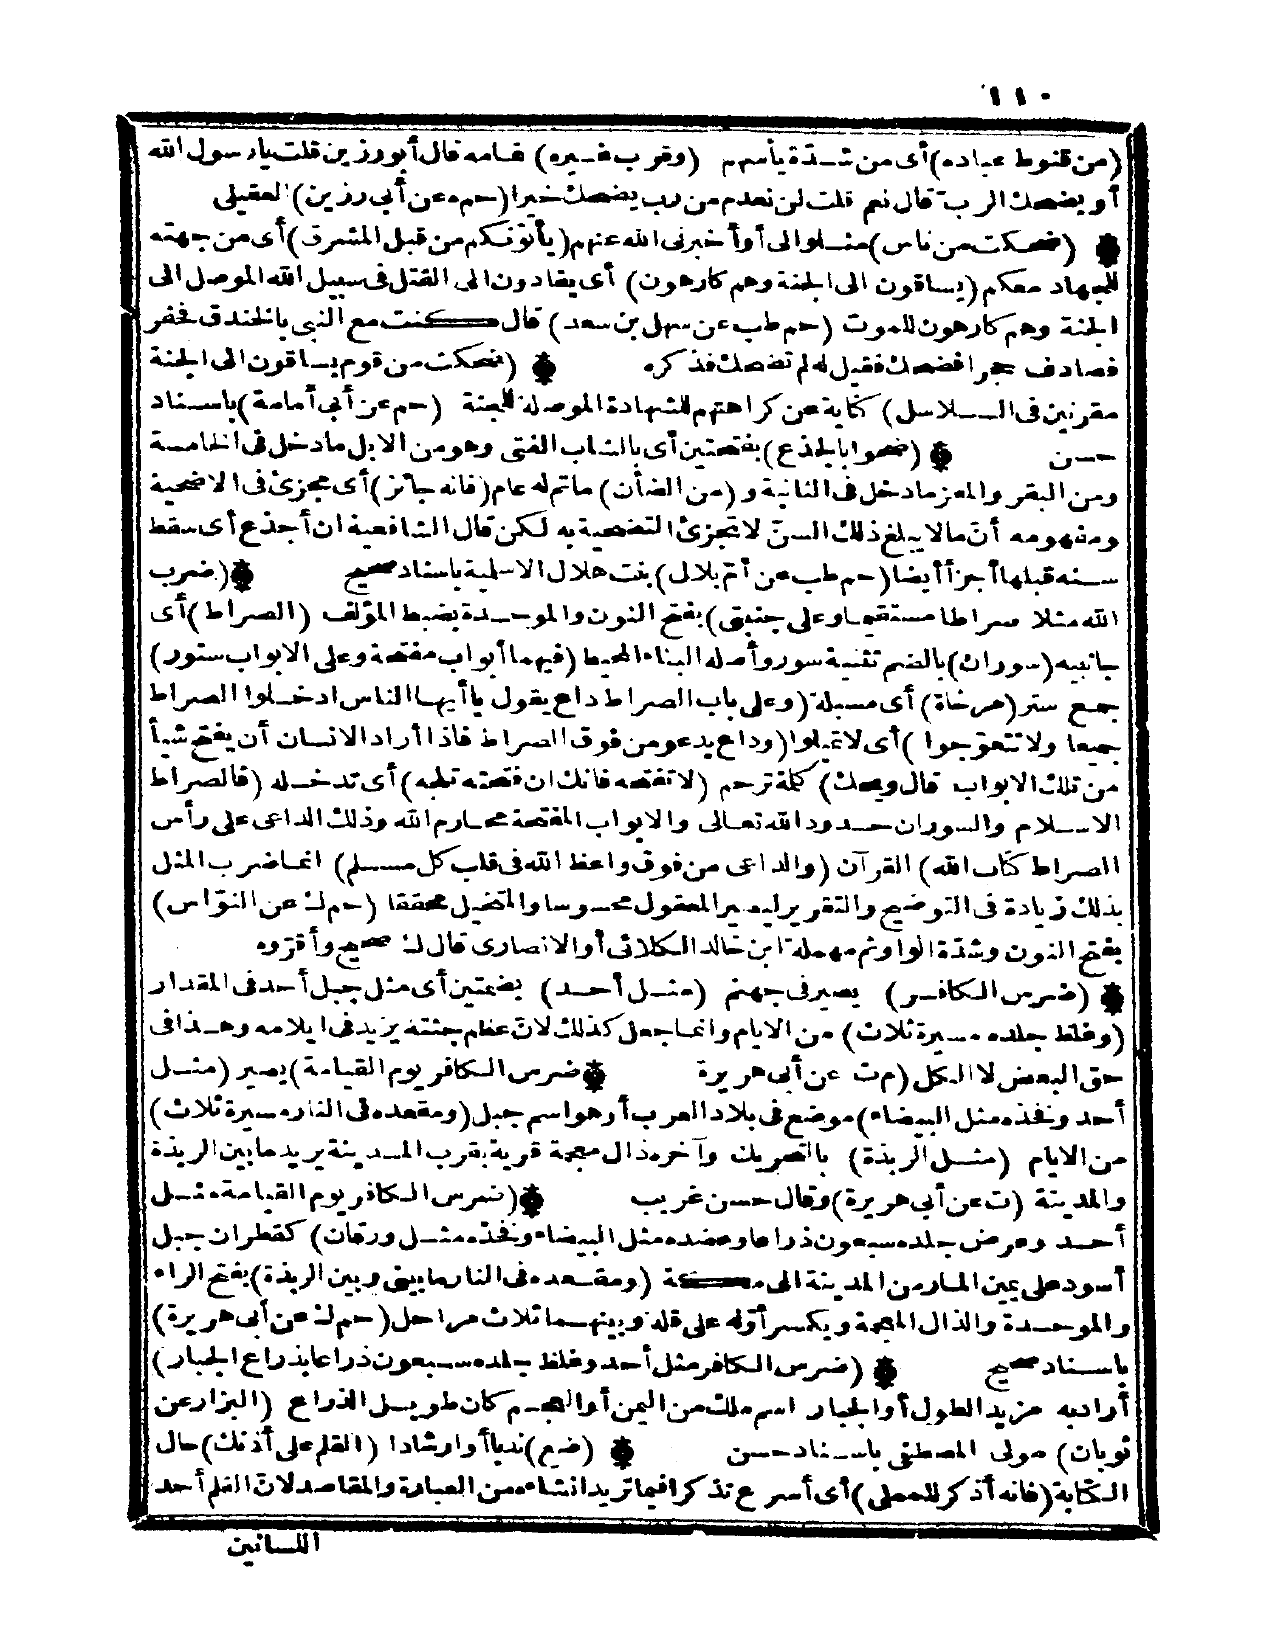 ١١٠
(من قنوط عباده) أى من شدة يأسهم (وقرب غيره) تمامه قال أبو رزين قلت يا رسول الله
أو يضحك الرب قال نعم قلت لن نعدم من رب يضحك خيرا (حم ه عن أبى رزين) العقيلى
(ضحكت من ناس) مثلوا لى أو أخبرنى الله عنهم (يأتونكم من قبل المشرق) أى من جهته
للجهاد معكم (يساقون الى الجنة وهم كارهون) أى يقادون الى القتل فى سبيل الله الموصل الى
الجنة وهم كارهون للموت (حم طب عن سهل بن سعد) قال كنت مع النبى بالخندق فحفر
فصادف حجرا فضحك فقيل له لم تضحك فذكره (ضحكت من قوم يساقون الى الجنة
مقرنين فى السلاسل) كناية عن كراهتهم للشهادة الموصلة للجنة (حم عن أبى أمامة) باسناد
حسن (ضحوا بالجذع) بفتحتين أى بالشاب الفتى وهو من الابل ما دخل فى الخامسة
ومن البقر والمعز ما دخل فى الثانية و (من الضأن) ما تم له عام (فانه جائز) أى مجزئ فى الاضحية
ومفهومه أن ما لا يبلغ ذلك السن لا تجزئ التضحية به لكن قال الشافعية ان أجذع أى سقط
سنه قبلها أجزأ أيضا (حم طب عن أم بلال) بنت هلال الاسلمية باسناد صحيح (ضرب
الله مثلا صراطا مستقيما وعلى جنبتى) بفتح النون والموحدة بضبط المؤلف (الصراط) أى
جانبيه (سوران) بالضم تثنية سور وأصله البناء المحيط (فيهما أبواب مفتحة وعلى الابواب ستور)
جمع ستر (مرخاة) أى مسبلة (وعلى باب الصراط داع يقول يا أيها الناس ادخلوا الصراط
جميعا ولا تتعوجوا) أى لا تميلوا (وداع يدعو من فوق الصراط فاذا أراد الانسان أن يفتح شيأ
من تلك الابواب قال ويحك) كلمة ترحم (لا تفتحه فانك ان فتحته تلجه) أى تدخله (فالصراط
الاسلام والسوران حدود الله تعالى والابواب المفتحة محارم الله وذلك الداعى على رأس
الصراط كتاب الله) القرآن (والداعى من فوق واعظ الله فى قلب كل مسلم) انما ضرب المثل
بذلك زيادة فى التوضيح والتقرير ليصير المعقول محسوسا والمتخيل محققا (حم ك عن النواس)
بفتح النون وشدة الواو ثم مهملة ابن خالد الكلابى أو الانصارى قال ك صحيح وأقروه
(ضرس الكافر) يصير فى جهنم (مثل أحد) بضمتين أى مثل جبل أحد فى المقدار
(وغلظ جلده مسيرة ثلاث) من الايام وانما جعل كذلك لان عظم جثته يزيد فى ايلامه وهذا فى
حق البعض لا الكل (م ت عن أبى هريرة ضرس الكافر يوم القيامة) يصير (مثل
أحد وفخذه مثل البيضاء) موضع فى بلاد العرب أو هو اسم جبل (ومقعده فى النار مسيرة ثلاث)
من الايام (مثل الربذة) بالتحريك وآخره ذال معجمة قرية بقرب المدينة يريد ما بين الربذة
والمدينة (ت عن أبى هريرة) وقال حسن غريب (ضرس الكافر يوم القيامة مثل
أحد وعرض جلده سبعون ذراعا وعضده مثل البيضاء وفخذه مثل ورقان) كقطران جبل
أسود على يمين المار من المدينة الى مكة (ومقعده فى النار ما بينى وبين الربذة) بفتح الراء
والموحدة والذال المعجمة ويكسر أوله على قلة وبينهما ثلاث مراحل (حم ك عن أبى هريرة)
باسناد صحيح (ضرس الكافر مثل أحد وغلظ جلده سبعون ذراعا بذراع الجبار)
أراد به مزيد الطول أو الجبار اسم ملك من اليمن أو العجم كان طويل الذراع (البزار عن
ثوبان) مولى المصطفى باسناد حسن (ضع) ندبا أو ارشادا (القلم على أذنك) حال
الكتابة (فانه أذكر للمملى) أى أسرع تذكرا فيما تريد انشاءه من العبارة والمقاصد لان القلم أحد
اللسانين